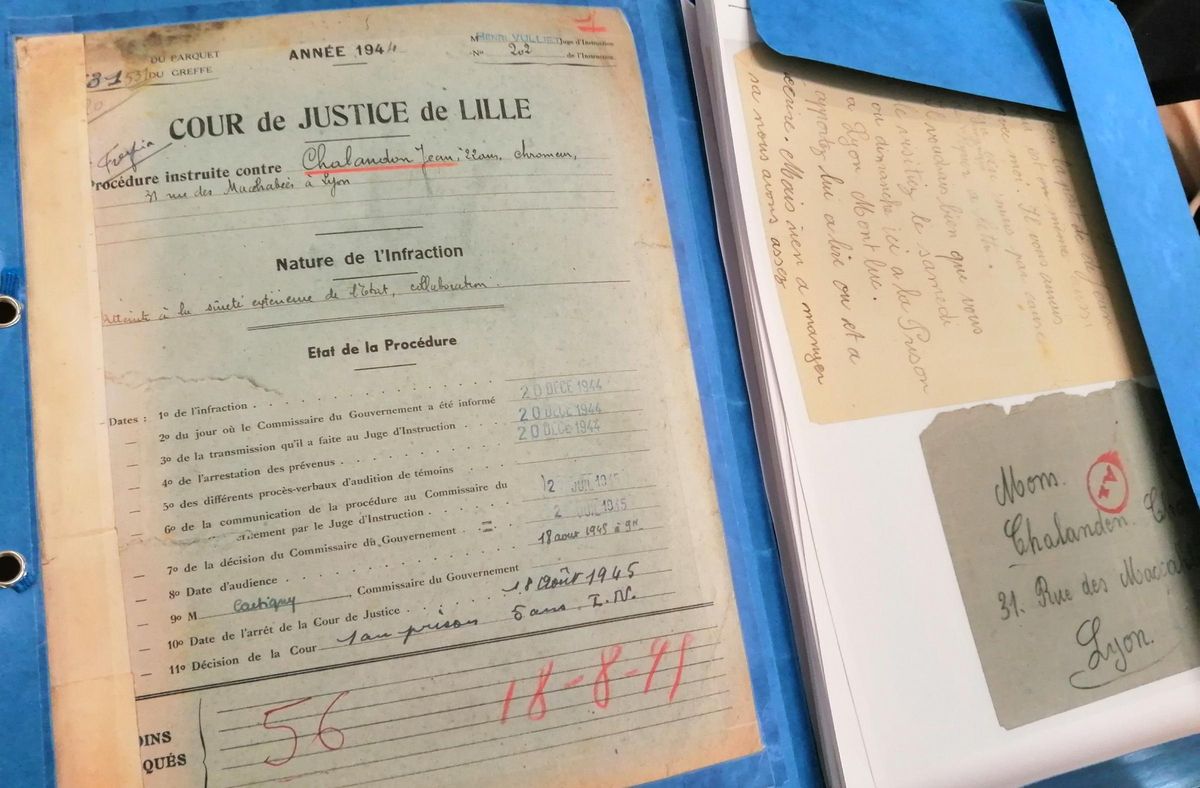 DU PARQUET
53-1531 DU GREFFE
ANNÉE 1944
M HENRI VULLIET Juge d'Instruction
No 202 de l'Instruction
COUR de JUSTICE de LILLE
Procédure instruite contre Chalandon Jean, 22 ans, chromeur,
31 rue des Macchabées à Lyon
Nature de l'Infraction
Atteinte à la sûreté extérieure de l'Etat, collaboration.
Etat de la Procédure
Dates : 1o de l'infraction
— 2o du jour où le Commissaire du Gouvernement a été informé 20 DECE 1944
— 3o de la transmission qu'il a faite au Juge d'Instruction 20 DECE 1944
— 4o de l'arrestation des prévenus 20 DECE 1944
— 5o des différents procès-verbaux d'audition de témoins
— 6o de la communication de la procédure au Commissaire du
ernement par le Juge d'Instruction 2 JUIL 1945
— 7o de la décision du Commissaire du Gouvernement 2 JUIL 1945
— 8o Date d'audience 18 aout 1945 à 9H
— 9o M , Commissaire du Gouvernement
— 10o Date de l'arrêt de la Cour de Justice 18 Août 1945
— 11o Décision de la Cour 1 an prison 5 ans I.N.
56
18-8-45
OINS
QUÉS
meme
moi. Il vous
voudrais bien que vous
le samedi
ou dimanche ici a la Prison
a Lyon Montluc.
apportez lui a lire ou et a
ecrire. Mais rien a manger
sa nous avons assez
Mons.
Chalanden.
31. Rue des
Lyon.